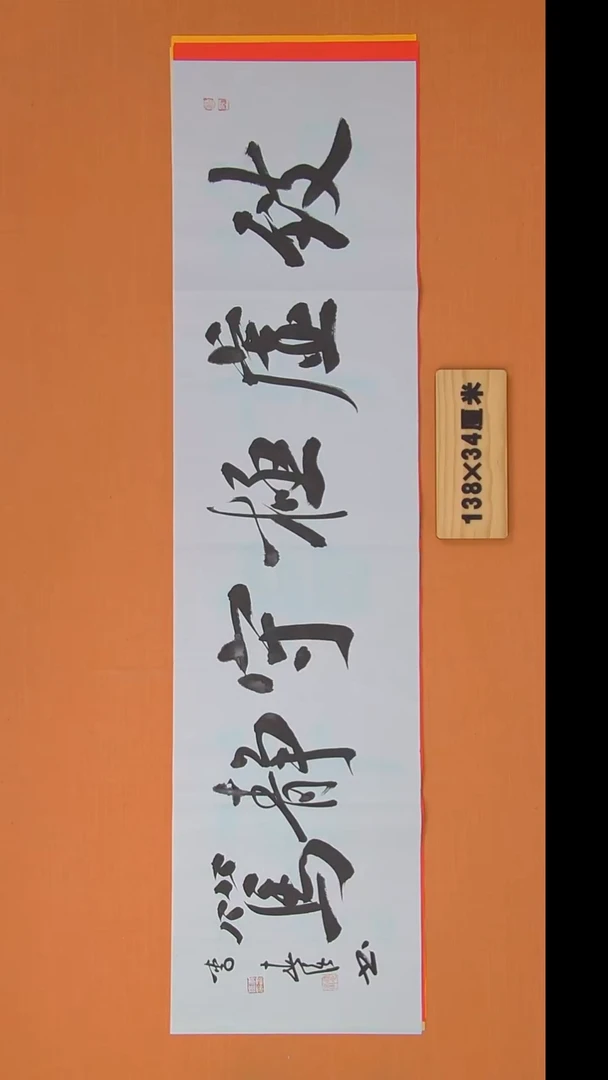 致虚极守静篤
138×34厘米